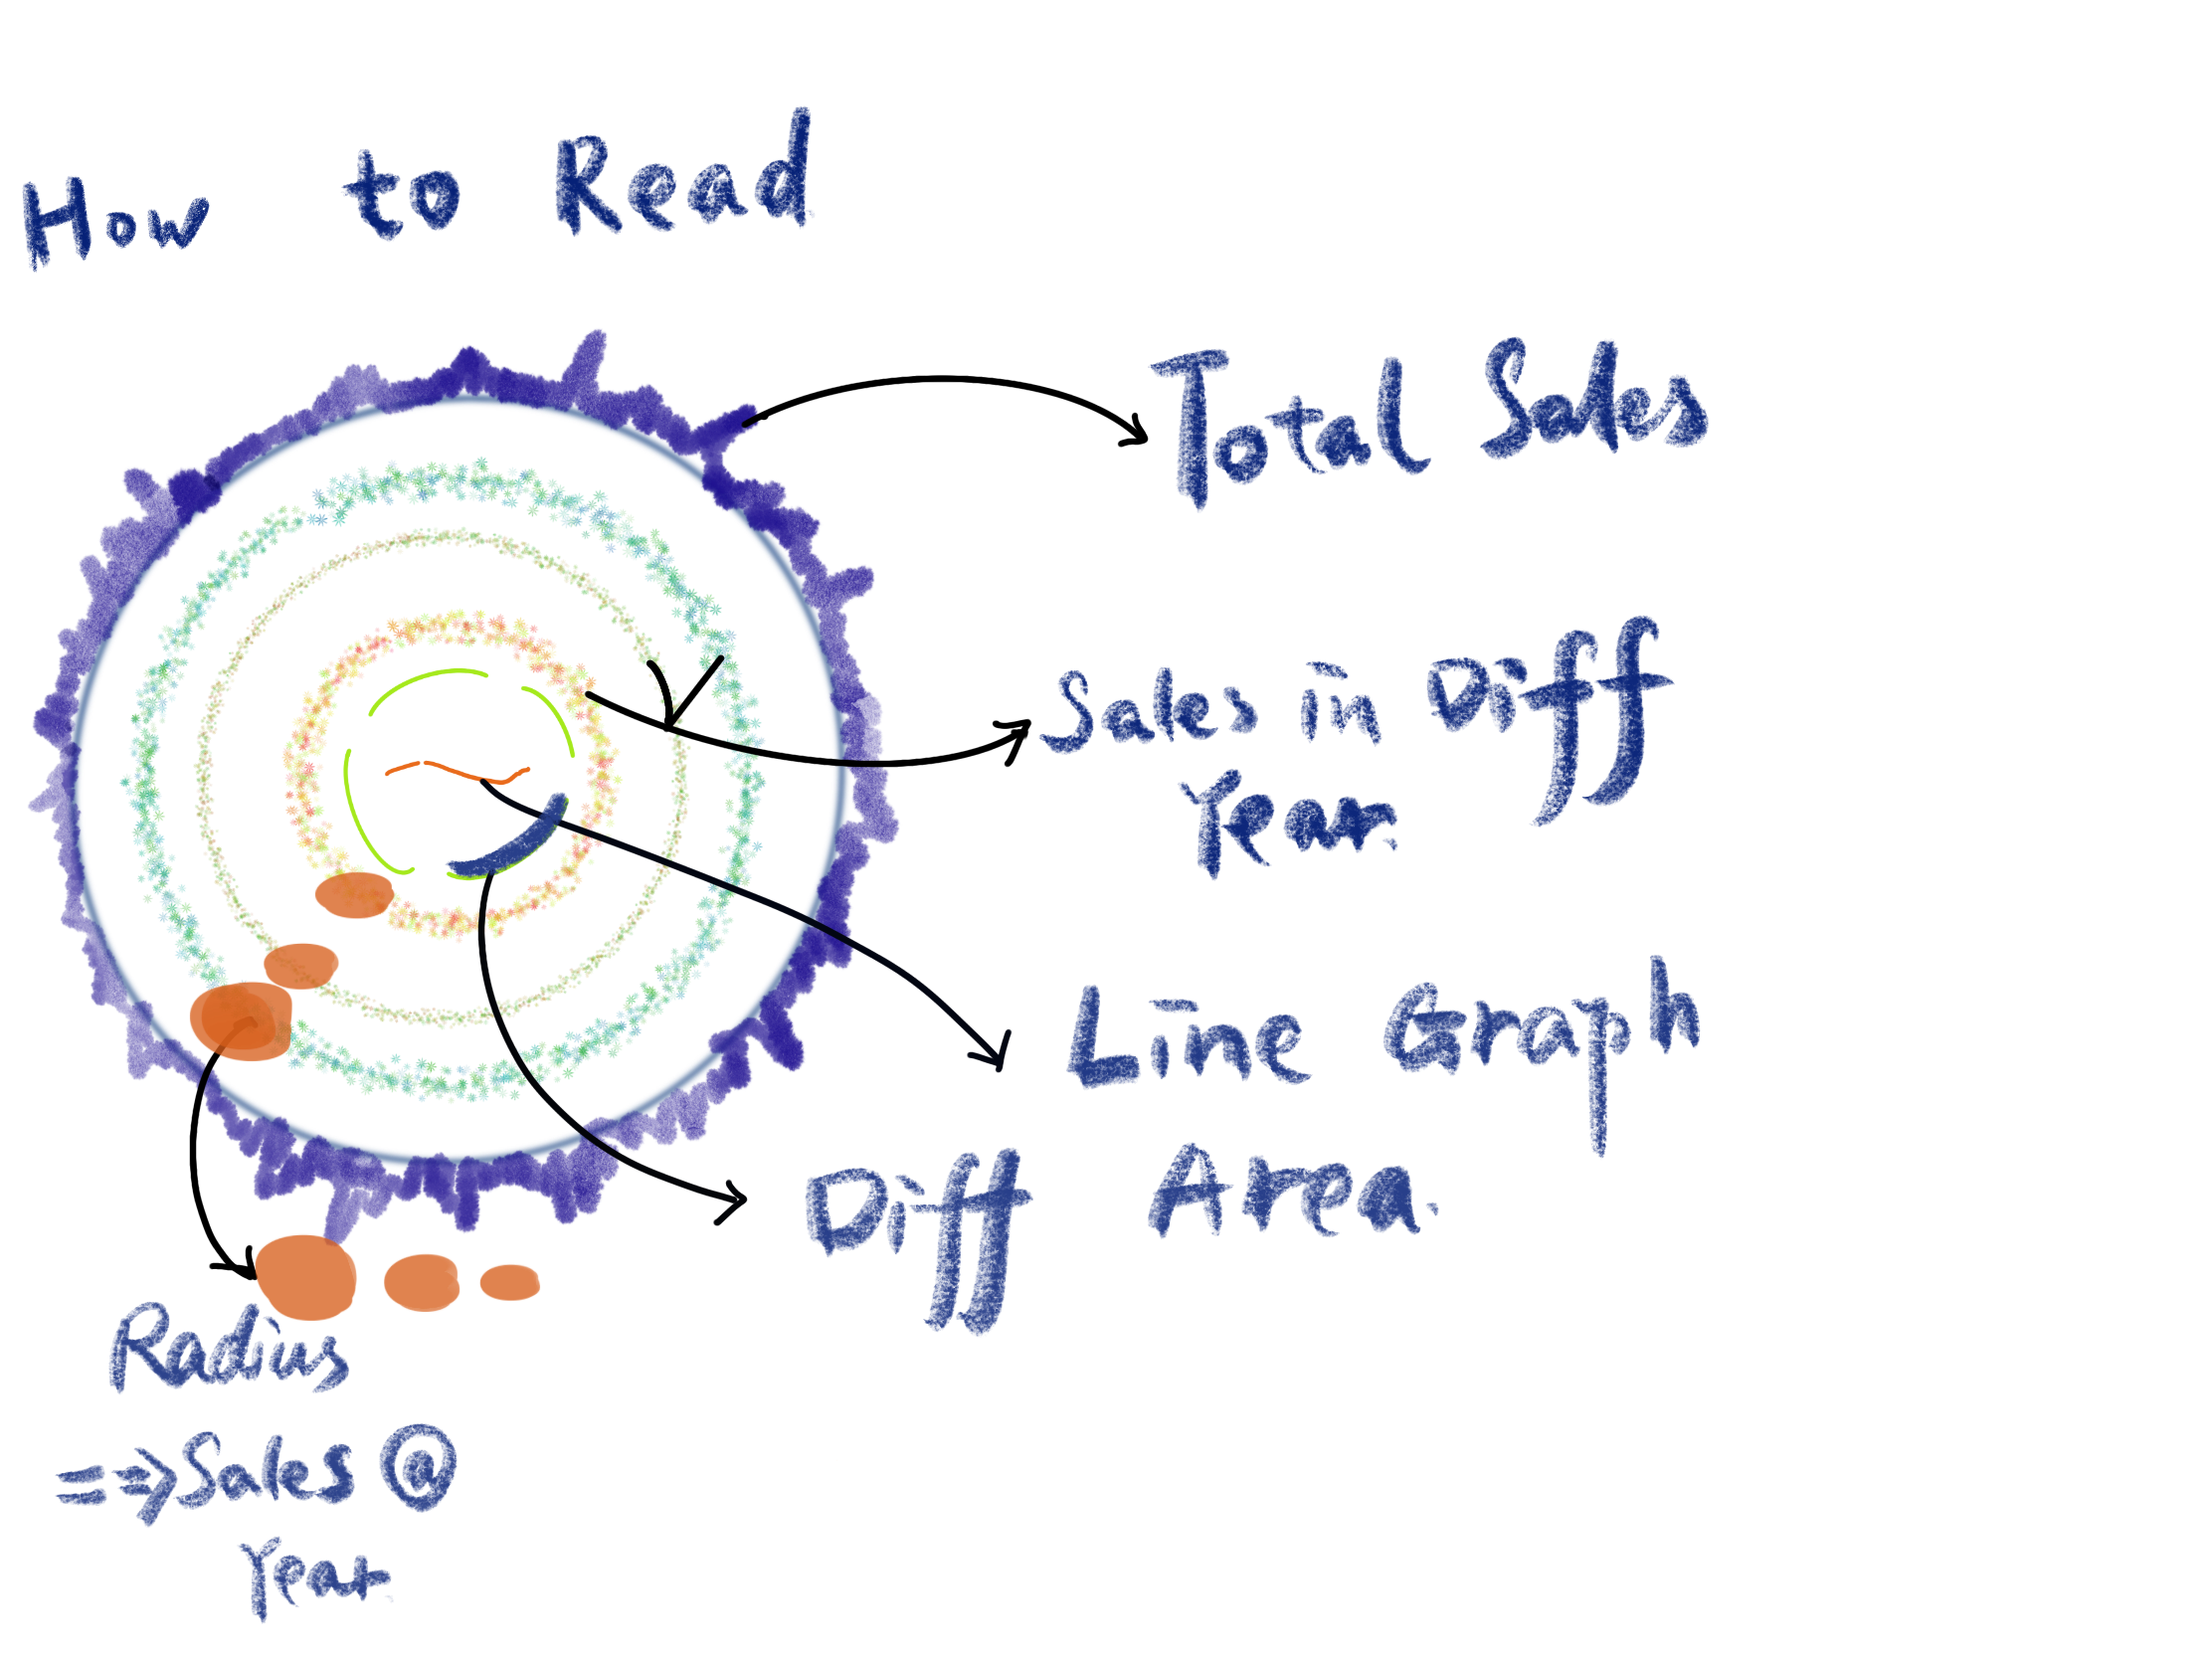 How to Read
Total Sales
Sales in Diff
Year.
Line Graph
Diff Area.
Radius
=⇒Sales @
Year